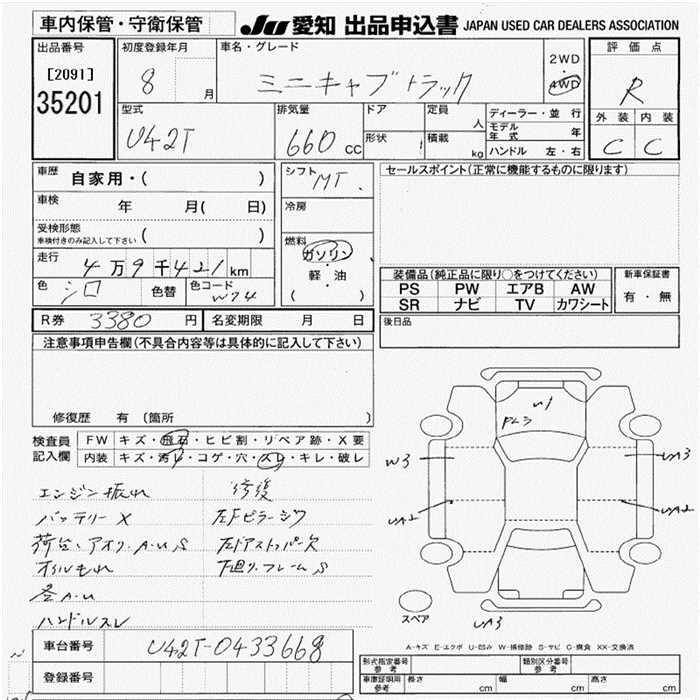 車内保管・守衛保管
JU 愛知 出品申込書 JAPAN USED CAR DEALERS ASSOCIATION
出品番号
[2091]
35201
初度登録年月
8 月
車名・グレード
ミニキャブトラック
2WD
・
4WD
評価点
R
外装 内装
C C
型式
U42T
排気量
660 cc
ドア
形状
定員 人
積載 kg
ディーラー・並行
モデル年式 年
ハンドル 左・右
車歴
自家用・( )
車検
年 月( 日)
受検形態
車検付きのみ記入して下さい ( )
走行
4万9千421km
色 シロ 色替 色コード W74
シフト MT
冷房
燃料
ガソリン
・
軽・油
( )
セールスポイント(正常に機能するものに限ります)
装備品(純正品に限り○をつけてください)
PS PW エアB AW
SR ナビ TV カワシート
新車保証書
有・無
R券 3380 円 名変期限 月 日
後日品
注意事項申告欄(不具合内容等は具体的に記入して下さい)
修復歴 有 〔箇所 〕
検査員記入欄
FW キズ・飛石・ヒビ割・リペア跡・X要
内装 キズ・汚レ・コゲ・穴・スレ・キレ・破レ
エンジン振れ 修復
バッテリーX 左Fピラージワ
荷台、アオリ、A.U.S
オイルもれ 下廻り、フレームS
A.U
ハンドルスレ
U1
W3
UA3
UA2
UA2
UA3
スペア
A-キズ E-エクボ U-凹み W-補修跡 S-サビ C-腐食 XX-交換済
車台番号 U42T-0433668
登録番号
型式指定番号 参考 類別区分番号 参考
車庫証明用 参考 長さ cm 幅 cm 高さ cm